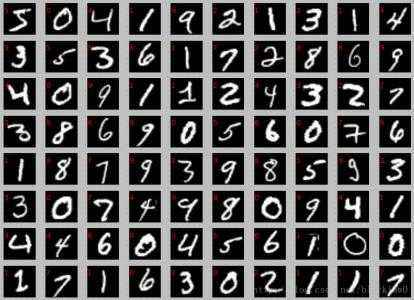 5 0 4 1 9 2 1 3 1 4
3 5 3 6 1 7 2 8 6 9
4 0 9 1 1 2 4 3 2 7
3 8 6 9 0 5 6 0 7 6
1 8 7 9 3 9 8 5 9 3
3 0 7 4 9 8 0 9 4 1
4 4 6 0 4 5 6 1 0 0
1 7 1 6 3 0 2 1 1 7